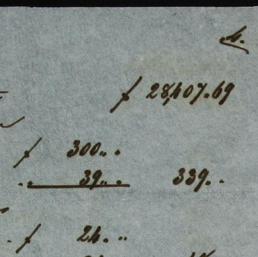 ƒ 28,407.69
ƒ 300.. .
. 39.. . 339. .
. ƒ 24. ..